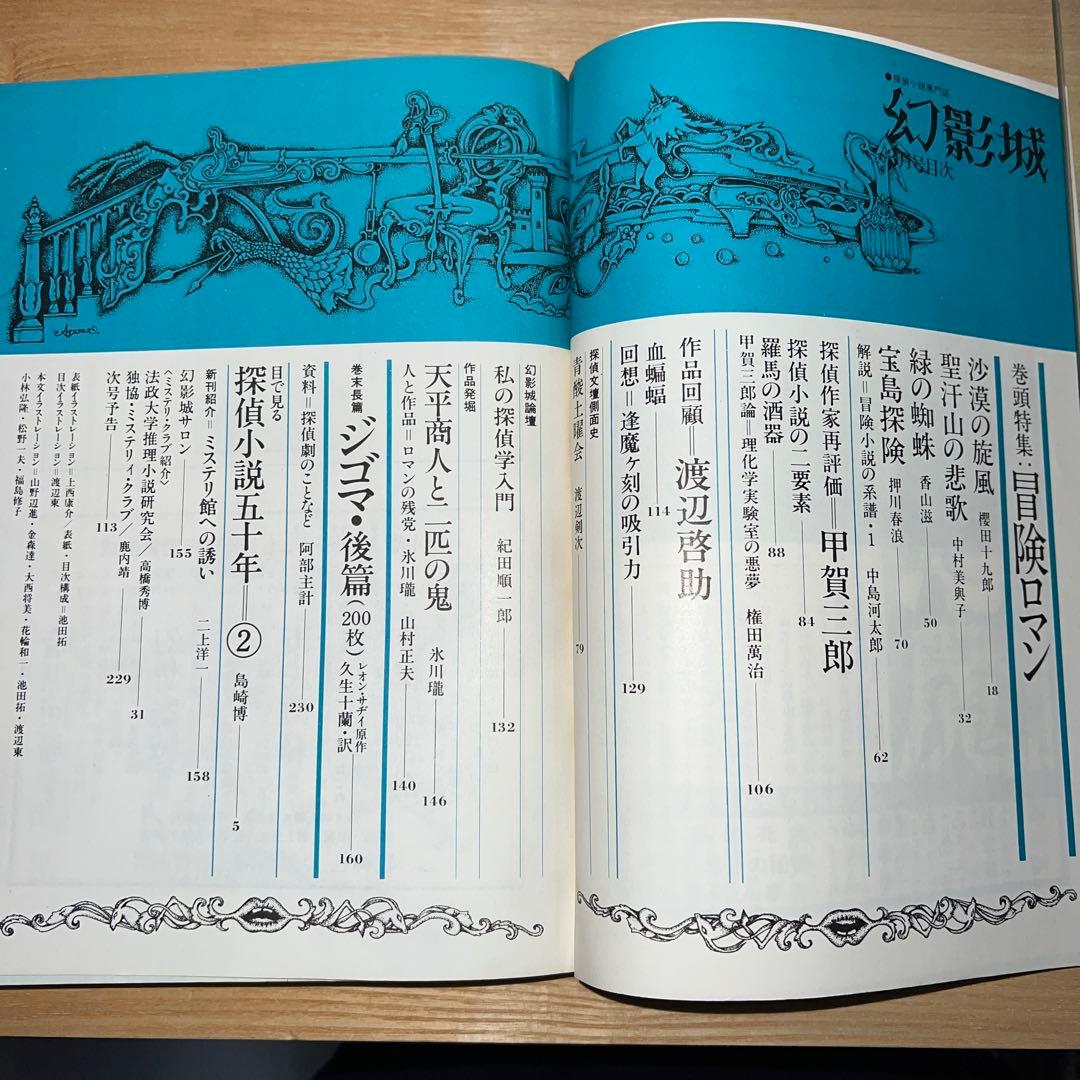 ●探偵小説専門誌
幻影城
月号目次
巻頭特集:冒険ロマン
沙漠の旋風 櫻田十九郎 18
聖汗山の悲歌 中村美與子 32
緑の蜘蛛 香山滋 50
宝島探険 押川春浪 70
解説=冒険小説の系譜・1 中島河太郎 62
探偵作家再評価=甲賀三郎
探偵小説の二要素 84
羅馬の酒器 88
甲賀三郎論=理化学実験室の悪夢 権田萬治 106
作品回顧=渡辺啓助
血蝙蝠 114
回想=逢魔ヶ刻の吸引力 129
探偵文壇側面史
青酸土曜会 渡辺剣次 79
幻影城論壇
私の探偵学入門 紀田順一郎 132
作品発掘
天平商人と二匹の鬼 氷川瓏 146
人と作品=ロマンの残党・氷川瓏 山村正夫 140
巻末長篇 ジゴマ・後篇(200枚) レオン・サヂイ原作 久生十蘭・訳 160
資料=探偵劇のことなど 阿部主計 230
目で見る
探偵小説五十年=② 島崎博 5
新刊紹介=ミステリ館への誘い 二上洋一 158
幻影城サロン 155
〈ミステリ・クラブ紹介〉
法政大学推理小説研究会/高橋秀博 31
独協・ミステリィ・クラブ/鹿内靖 229
次号予告 113
表紙イラストレーション=上西康介/表紙・目次構成=池田拓
目次イラストレーション=渡辺東
本文イラストレーション=山野辺進・金森達・大西将美・花輪和一・池田拓・渡辺東
小林弘隆・松野一夫・福島修子
Azuma